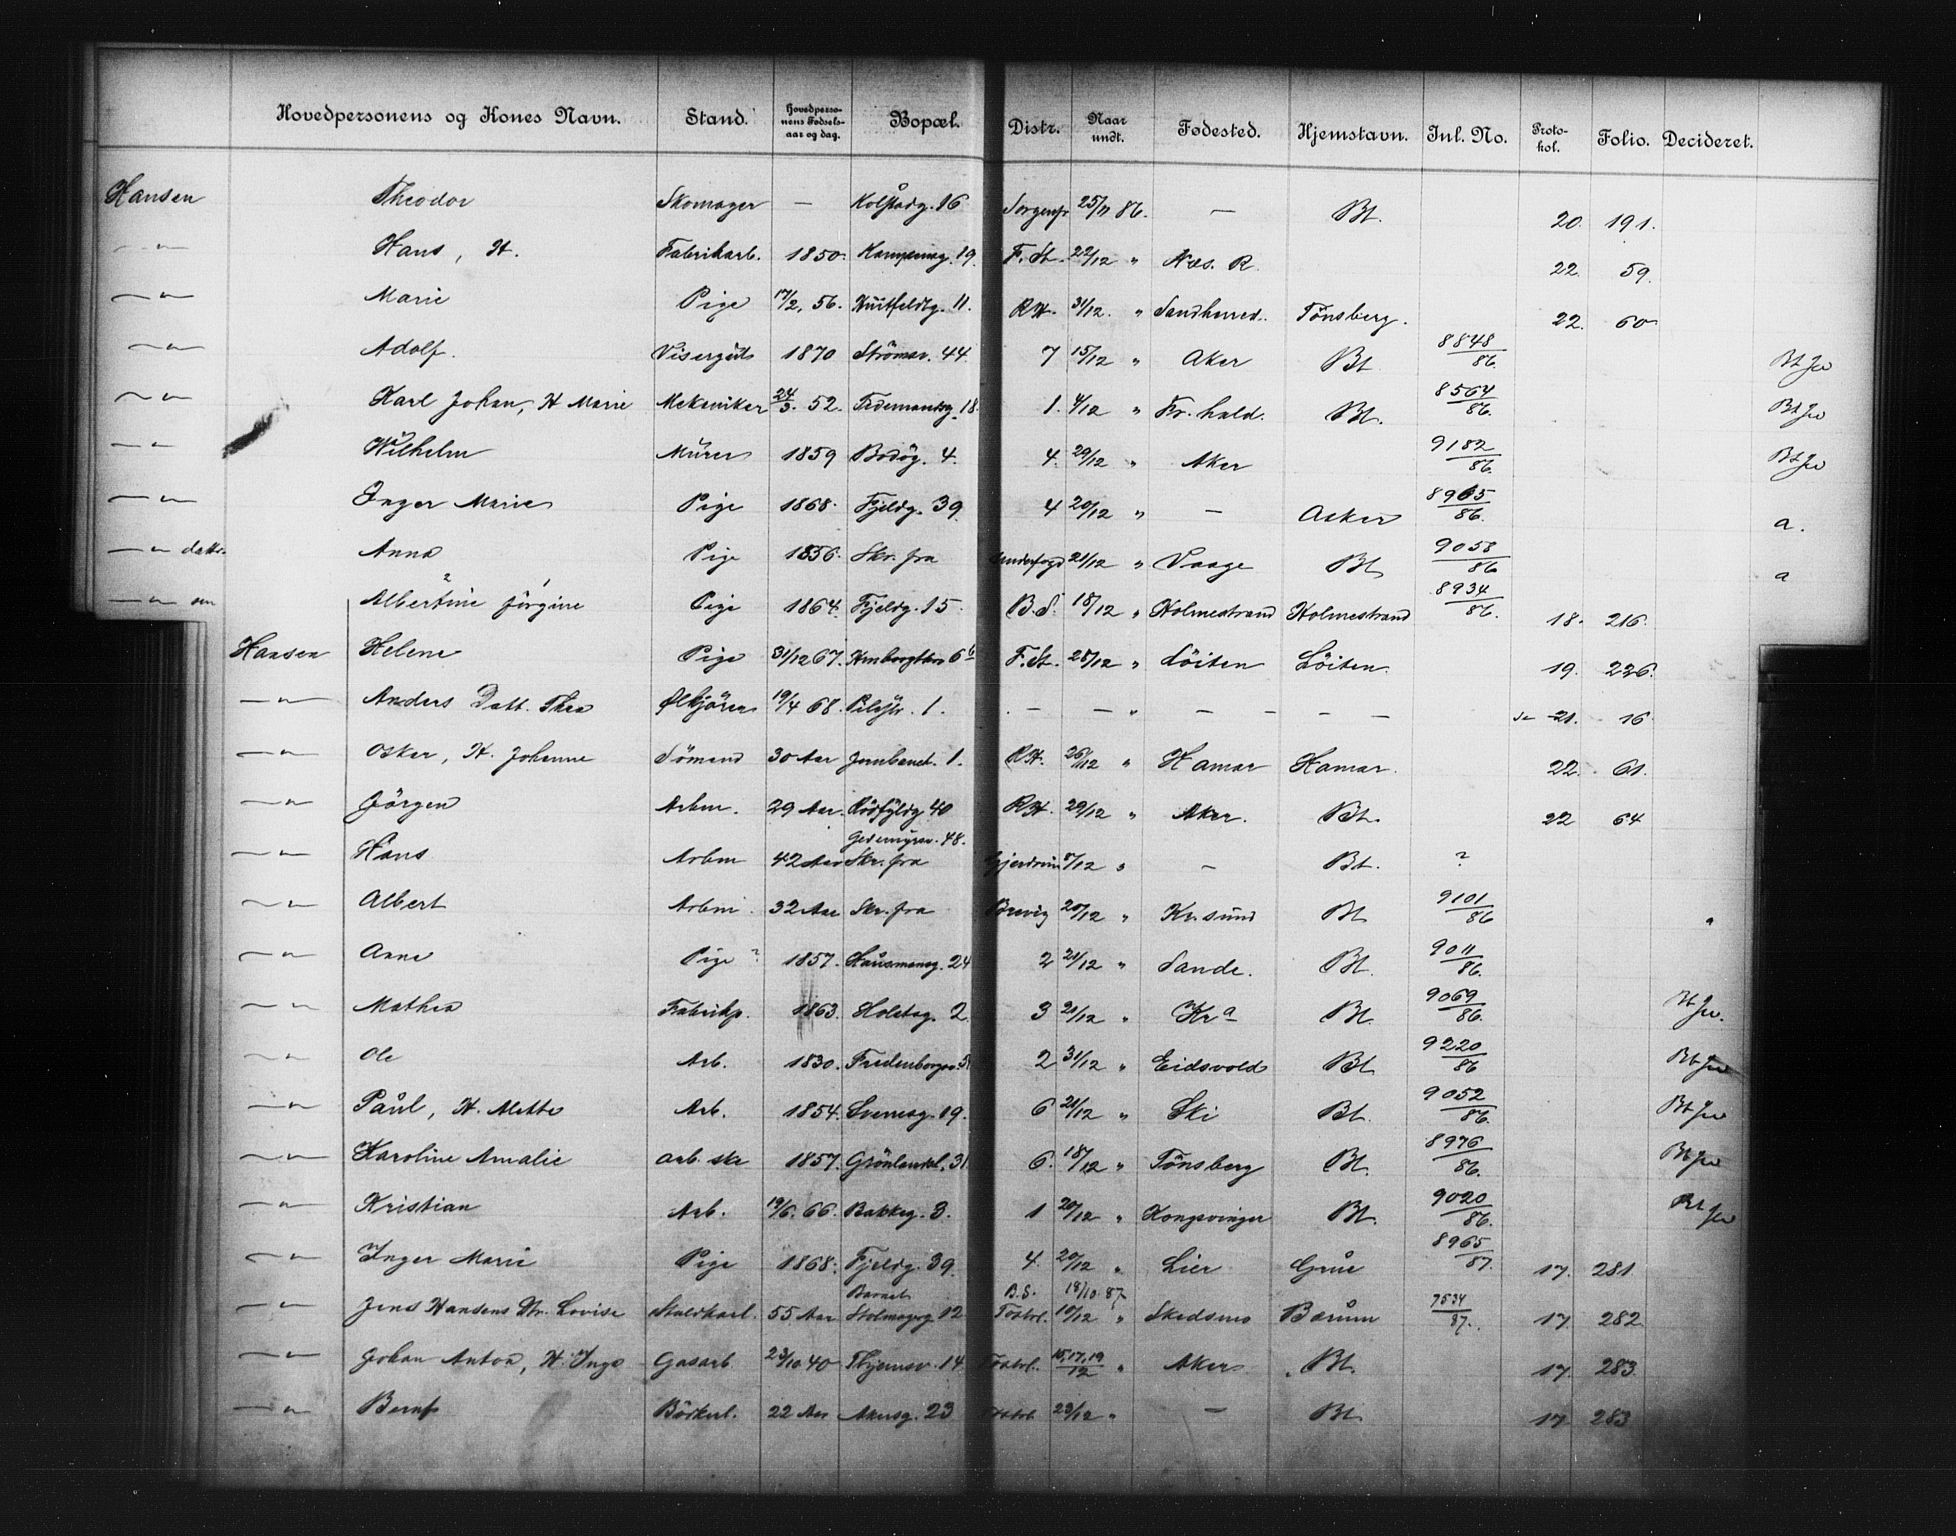 Hovedpersonens og Kones Navn. Stand. Hovedpersonens Fødselsaar og dag. Bopæl. Distr. Naar undt. Fødested. Hjemstavn. Inl. No. Protokol. Folio. Decideret.
Hansen Theodor Skomager — Kolstadg. 16 Sorgenfr 25/11 86. — Bt. 20. 191.
—"— Hans, H. Fabrikarb. 1850. Kampensg. 19. F. St. 22/12 " Næs. R. 22. 59.
—"— Marie Pige 17/2. 56. Huitfeldtg. 11. RH. 31/12. " Sandherred. Tønsberg. 22. 60.
—"— Adolf. Visergut 1870 Strömsv. 44. 7 15/12 " Aker Bt 8848/86. Bt Jw
—"— Karl Johan, H Marie Mekaniker 24/3. 52. Tidemandsg. 18. 1. 4/12 " Fr. hald. Bt. 8564/86. Bt Jw
—"— Wilhelm Murer 1859 Bodög. 4. 4. 29/12 " Aker 9182/86. Bt Jw
—"— Inger Marie Pige 1868. Fjeldg. 39. 4 20/12 " — Asker 8965/86. a.
—"— dattr. Anna Pige 1856. Skr. fra 21/12 " Vaage Bt 9058/86 a
—"— sen Albertine Jörgine Pige 1864. Fjeldg. 15. B.S. 18/12 " Holmestrand Holmestrand 8934/86. 18. 216.
Hansen Helene Pige 31/12 67. 6 F. St. 28/12 " Löiten Löiten. 19. 226.
—"— Anders Datt. Thea Ølkjörer 19/4 68. Pilestr. 1. — — " — — — — 21. 16.
—"— Oskar, H. Johanne Sömand 30 Aar Jernbanet. 1. RH. 26/12 " Hamar Hamar. 22. 61.
—"— Jörgen Arbm. 29 Aar. Rödfyldg 40 RH. 29/12 " Aker. Bt. 22 64
Gedemyrsv. 48.
—"— Hans Arbm 42 Aar Skr. fra Gjerdrum 8/12 " — Bt. ?
—"— Albert Arbm. 32 Aar Skr. fra Brevig 20/12 " Kr.sund Bt 9101/86 "
—"— Anne Pige ? 1857. Hausmansg. 24 2 21/12 " Sande. Bt. 9011/86.
—"— Mathea Fabrikp. 1863. Holstsg. 2. 3 21/12 " Kra Bt. 9069/86. Bt Jw.
—"— Ole Arb. 1830. Fredensborgsv. 5 2 31/12 " Eidsvold Bt 9220/86 Bt Jw
—"— Paul, H. Mette Arb. 1854. Sverresg. 19. 6 21/12 " Ski Bt. 9052/86. Bt Jw
—"— Karoline Amalie arb. ske 1857. Grönlandsl. 31 6. 18/12 " Tönsberg Bt. 8976/86. Bt Jw
—"— Kristian Arb. 19/6. 66. Bakkeg. 3. 1 20/12 " Kongsvinger Bt. 9020/86. Bt Jw
—"— Inger Marie Pige 1868. Fjeldg. 39. 4. 20/12 " Lier Grue 8965/87. 17. 281.
Barnet B.S. 18/10. 87.
—"— Jens Hansens Lovise Staldkarl. 55 Aar 12 10/12 " Skedsmo Bærum 7534/87. 17. 282.
—"— Johan Anton, H. Inga Gasarb. 23/10 40 Thjemsv. 14. 15,17,19/12 " Aker Bt. 17. 283.
—"— Bernt Bödkerl. 22 Aar Akersg. 23 23/12 " — Bt 17. 283.